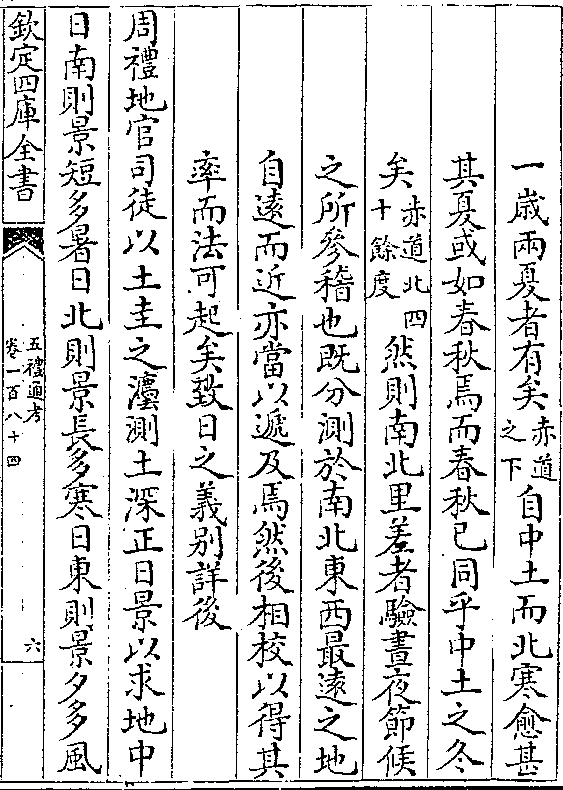 一歳兩夏者有矣赤道之下自中土而北寒愈甚
其夏或如春秋焉而春秋已同乎中土之冬
矣赤道北四十餘度然則南北里差者驗晝夜節候
之所參稽也既分測於南北東西最遠之地
自遠而近亦當以遞及焉然後相校以得其
率而法可起矣致日之義别詳後
周禮地官司徒以土圭之灋測土深正日景以求地中
日南則景短多暑日北則景長多寒日東則景夕多風
欽定四庫全書
五禮通考
卷一百八十四
六